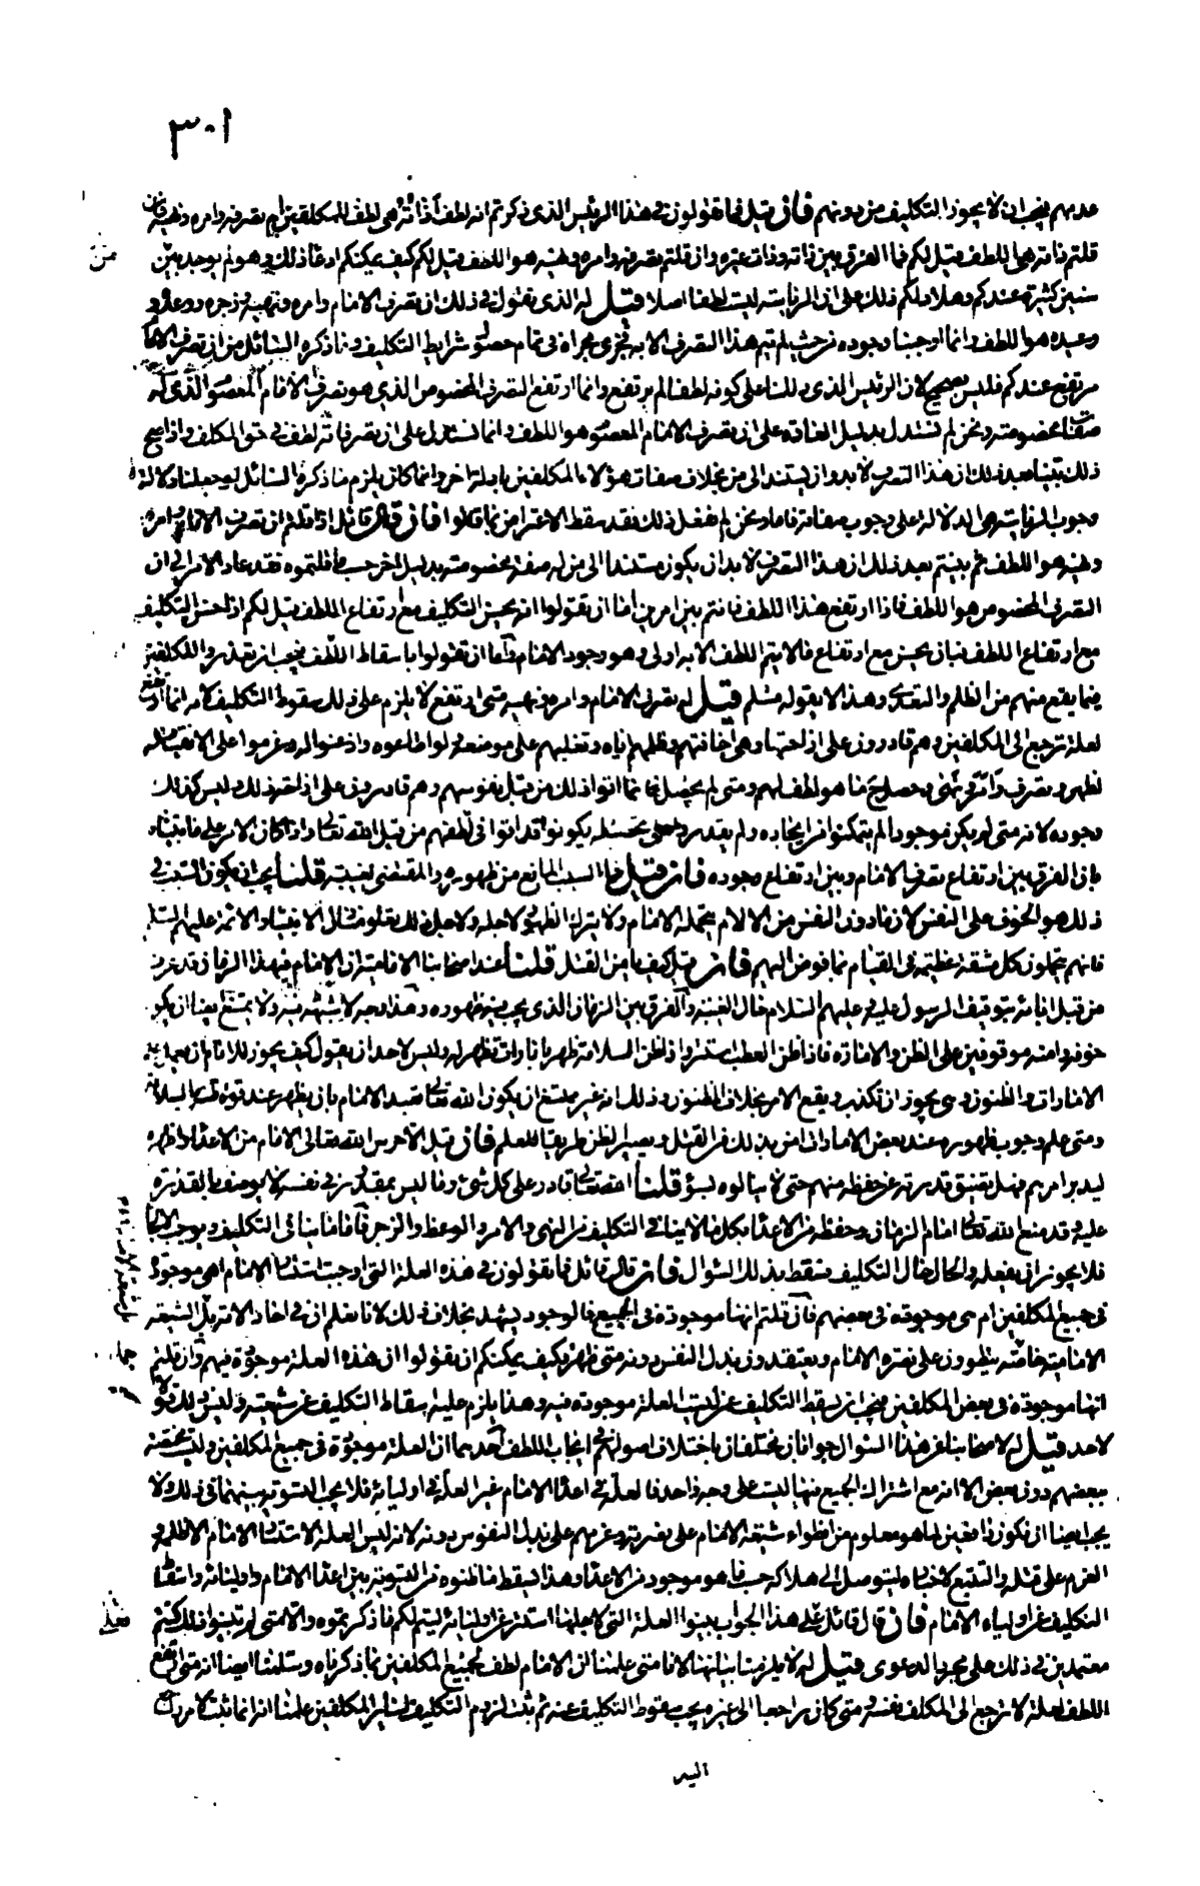 ٣٠١
عدمهم فيجب ان لا يجوز التكليف من دونهم فان قيل فما تقولون في هذا الرئيس الذي ذكرتم انه لطف أذاته هي لطف للمكلفين ام تصرفه وامره ونهيه فان
قلتم ذاته هي اللطف قيل لكم فما الفرق بين ذاته وذات غيره وان قلتم تصرفه وامره ونهيه هو اللطف قيل لكم كيف يمكنكم ادعاء ذلك وهو لم يوجد بين
سنين كثيرة عندكم وهلا دلكم ذلك على ان الرياسة ليست لطفا اصلا قيل له الذي نقول في ذلك ان تصرف الامام وامره ونهيه وزجره ووعده و
وعيده هو اللطف وانما اوجبنا وجوده من حيث لم يتم هذا التصرف الا به فجرى مجراه في تمام حصول شرايط التكليف وما ذكره السائل من ان تصرف الامام
مرتفع عندكم فليس بصحيح لان الرئيس الذي دللنا على كونه لطفا لم يرتفع وانما ارتفع التصرف المخصوص الذي هو تصرف الامام المعصوم الذي له
صفات مخصوصة ونحن لم نستدل بدليل العادة على ان تصرف الامام المعصوم هو اللطف وانما نستدل على ان تصرفا ما لطف في حق المكلف واذا صح
ذلك بينا بعد ذلك ان هذا التصرف لا بد وان يستند الى من بخلاف صفات هؤلاء المكلفين بادلة اخر وانما كان يلزم ما ذكره السائل لو جعلنا دلالة
وجوب الرياسة هي الدلالة على وجوب صفاته فاما ونحن لم نفعل ذلك فقد سقط الاعتراض بما قالوا فان قال قائل اذا قلتم ان تصرف الامام وامره
ونهيه هو اللطف ثم بينتم بعد ذلك ان هذا التصرف لا بد ان يكون مستندا الى من له صفة مخصوصة بدليل اخر حسب ما قلتموه فقد عاد الامر الى ان
التصرف المخصوص هو اللطف فاذا ارتفع هذا اللطف فانتم بين امرين اما ان تقولوا انه يحسن التكليف مع ارتفاع اللطف قيل لكم اذا حسن التكليف
مع ارتفاع اللطف فبان يحسن مع ارتفاع ما لا يتم اللطف الا به اولى وهو وجود الامام واما ان تقولوا باسقاط اللطف فيجب ان تعذروا المكلفين
فيما يقع منهم من الظلم والتعدي وهذا لا يقوله مسلم قيل له تصرف الامام وامره ونهيه متى ارتفع لا يلزم على ذلك سقوط التكليف لانه انما ارتفع
لعلة ترجع الى المكلفين وهم قادرون على ازاحتها وهي اخافتهم وظلمهم اياه وتغلبهم على موضعه ولو اطاعوه واذعنوا له وعزموا على الانقياد له
لظهر وتصرف وامر ونهى وحصل جميع ما هو لطف لهم ومتى لم يحصل فانما اتوا ذلك من قبل نفوسهم وهم قادرون على ازاحته وليس كذلك
وجوده لانه متى لم يكن موجودا لم يتمكنوا من ايجاده ولم يقدروا على تحصيله يكونوا قد اتوا في لطفهم من قبل الله تعالى واذا كان الامر على ما بيناه
بان الفرق بين ارتفاع تصرف الامام وبين ارتفاع وجوده فان قيل فما السبب المانع من ظهوره والمقتضي لغيبته قلنا يجب ان يكون السبب في
ذلك هو الخوف على النفس لان ما دون النفس من الالام يتحمله الامام ولا يترك الظهور لاجله ولاجل ذلك يعلو منازل الانبياء والائمة عليهم السلم
فانهم يتحملون كل مشقة عظيمة في القيام بما فوض اليهم فان قيل كيف يامن القتل قلنا عند اصحابنا الامامية ان الامام في هذا الزمان قد عرف
من قبل ابائه بتوقيف الرسول عليه وعليهم السلام حال الغيبة والفرق بين الزمان الذي يجب فيه ظهوره وهذا وجه لا شبهة فيه ولا يمتنع ايضا ان يكون
خوفه وامنه موقوفين على الظن والامارة فاذا ظن العطب استتر واذا ظن السلامة ظهر بامارات تظهر له وليس لاحد ان يقول كيف يجوز للامام ان يعمل
الامارات والظنون وهي يجوز ان تكذب ويقع الامر بخلاف الظنون وذلك انه غير ممتنع ان يكون الله تعالى تعبد الامام بان يظهر عند قوة ظنه بالسلامة
ومتى علم وجوب ظهوره عند بعض الامارات امن بذلك من القتل ويصير الظن طريقا للعلم فان قيل الا حرس الله تعالى الامام من الاعداء واظهره
ليدبر امرهم فهل تضيق قدرته عن حفظه منهم حتى لا ينالوه بسوء قلنا الله تعالى قادر على كل شيء وما ليس بمقدور في نفسه لا يوصف بالقدرة
عليه وقد منع الله تعالى امام الزمان وحفظه من الاعداء بكل ما لا ينافي التكليف من النهي والامر والوعظ والزجر فاما ما ينافي التكليف ويوجب الالجاء
فلا يجوز ان يفعله والحال حال التكليف فسقط بذلك السؤال فان قال قائل فما تقولون في هذه العلة التي اوجبت استتار الامام اهي موجودة
في جميع المكلفين ام هي موجودة في بعضهم فان قلتم انها موجودة في الجميع فالوجود يشهد بخلاف ذلك لانا نعلم ان في احاد الامة بل الشيعة
الامامية خاصة ينطوون على نصرة الامام ويعتقدون بذل النفس دونه متى ظهر فكيف يمكنكم ان تقولوا ان هذه العلة موجودة فيهم وان قلتم
انها موجودة في بعض المكلفين فيجب ان يسقط التكليف عمن ليست العلة موجودة فيه وهذا يلزم عليه اسقاط التكليف عن شيعته وليس ذلك بقول
لاحد قيل له لاصحابنا عن هذا السؤال جوابان مختلفان باختلاف اصولهم في ايجاب اللطف احدهما ان العلة موجودة في جميع المكلفين وليست مختصة
ببعضهم دون بعض الا انه مع اشتراك الجميع فيها ليست على وجه واحد فالعلة في اعداء الامام غير العلة في اوليائه فلا يجب التسوية بينهما في ذلك ولا
يجب ايضا ان نكون دافعين لما هو معلوم من انطواء شيعة الامام على نصرته وعزمهم على بذل النفوس دونه لانه ليس العلة لاستتار الامام الا الظلم و
العزم على قتله والتتبع لاخباره ليتوصل الى هلاكه حسب ما هو موجود من الاعداء وهذا يسقط ما ظنوه من التسوية بين اعداء الامام واوليائه واسقاط
التكليف عن اولياء الامام فان قال قائل على هذا الجواب بينوا العلة التي لاجلها استتر عن اوليائه ليتم لكم ما ذكرتموه والا متى لم تبينوا ذلك كنتم
معتمدين في ذلك على مجرد الدعوى قيل له لا يلزمنا بيانها لانا متى علمنا ان الامام لطف لجميع المكلفين بما ذكرناه وسلمنا ايضا انه متى ارتفع
اللطف لعلة لا ترجع الى المكلف نفسه ومتى كان راجعا الى غيره يجب سقوط التكليف عنه ثم ثبت لزوم التكليف لسائر المكلفين علمنا انه انما فات لامر راجع
اليه